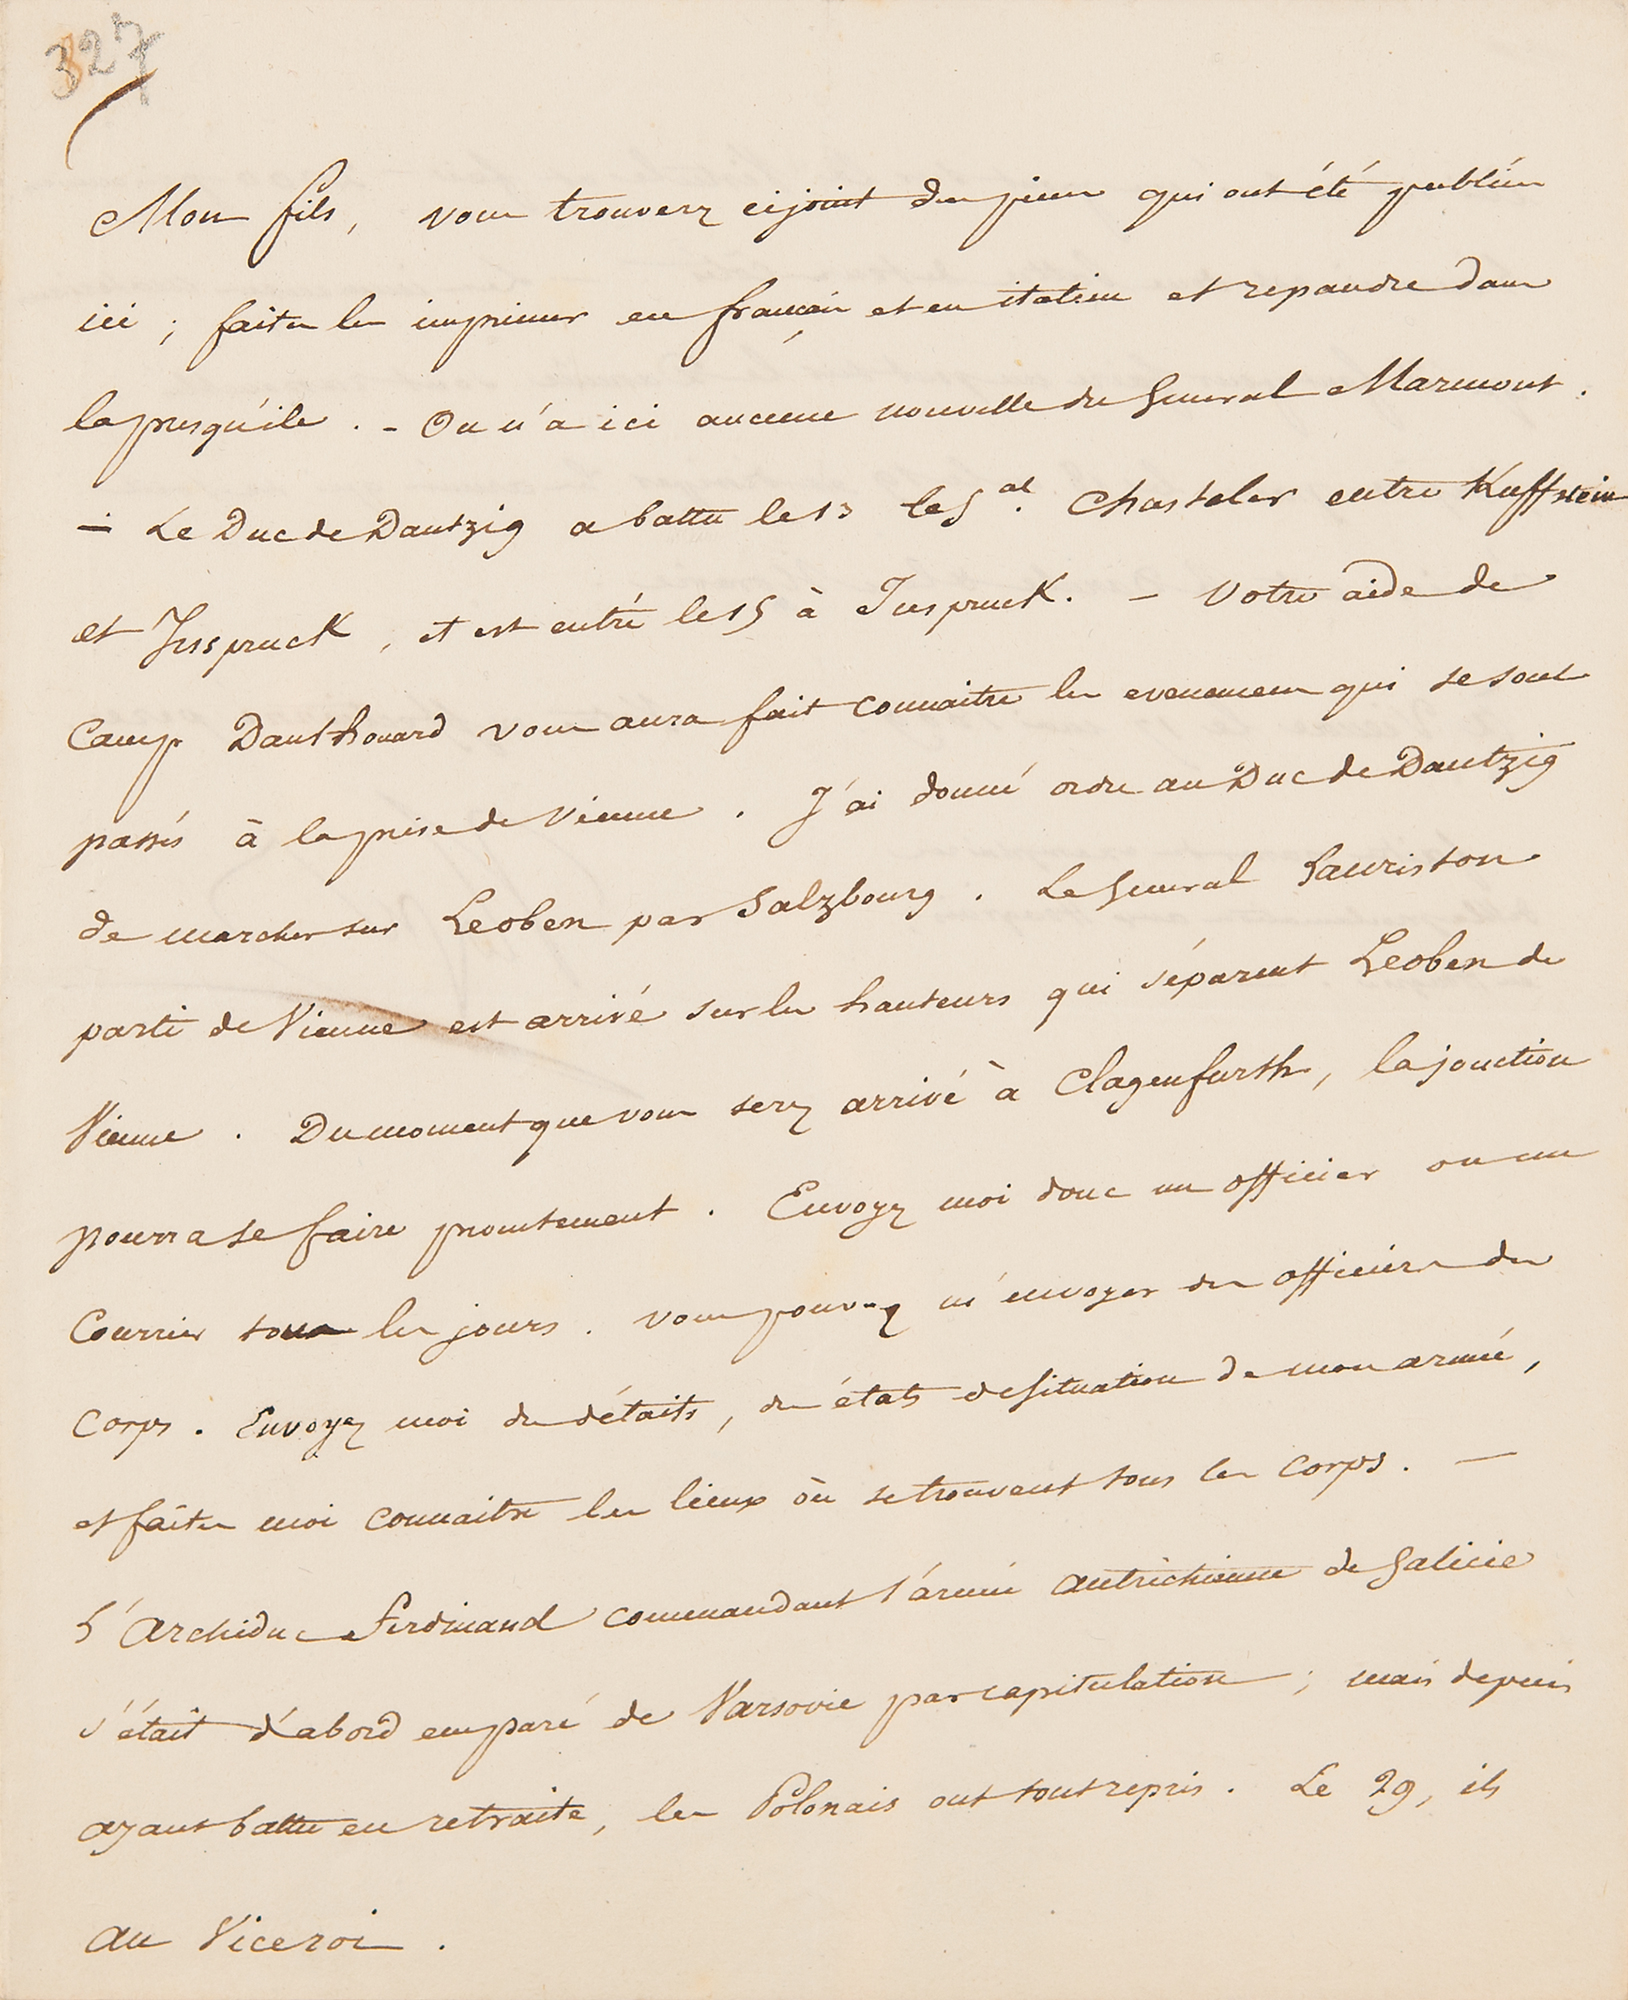 327
Mon fils, vous trouverez cijoint des pieces qui ont été publiées
ici ; faites les imprimer en français et en italien et repandre dans
la presqu'ile . - On n'a ici aucune nouvelle du General Marmont .
- Le Duc de Dantzig a battu le 13 le Gal. Chasteler entre Kuffstein
et Inspruck , et est entré le 15 à Inspruck. - Votre aide de
Camp Danthouard vous aura fait connaitre les evenemens qui se sont
passés à la prise de Vienne . J'ai donné ordre au Duc de Dantzig
de marcher sur Leoben par Salzbourg . Le General Lauriston
parti de Vienne est arrivé sur les hauteurs qui séparent Leoben de
Vienne . Du moment que vous serez arrivé à Clagenfurth, la jonction
pourra se faire promtement . Envoyez moi donc un officier ou un
Courrier tous les jours . Vous pouvez m'envoyer des officiers des
corps . Envoyez moi des détails, des états de situation de mon armée,
et faites moi connaitre les lieux où se trouvent tous les corps. -
L'Archiduc Ferdinand commandant l'armée autrichienne de Galicie
s'était d'abord emparé de Varsovie par capitulation ; mais depuis
ayant battu en retraite, les Polonais ont tout repris . Le 29, ils
au Viceroi .